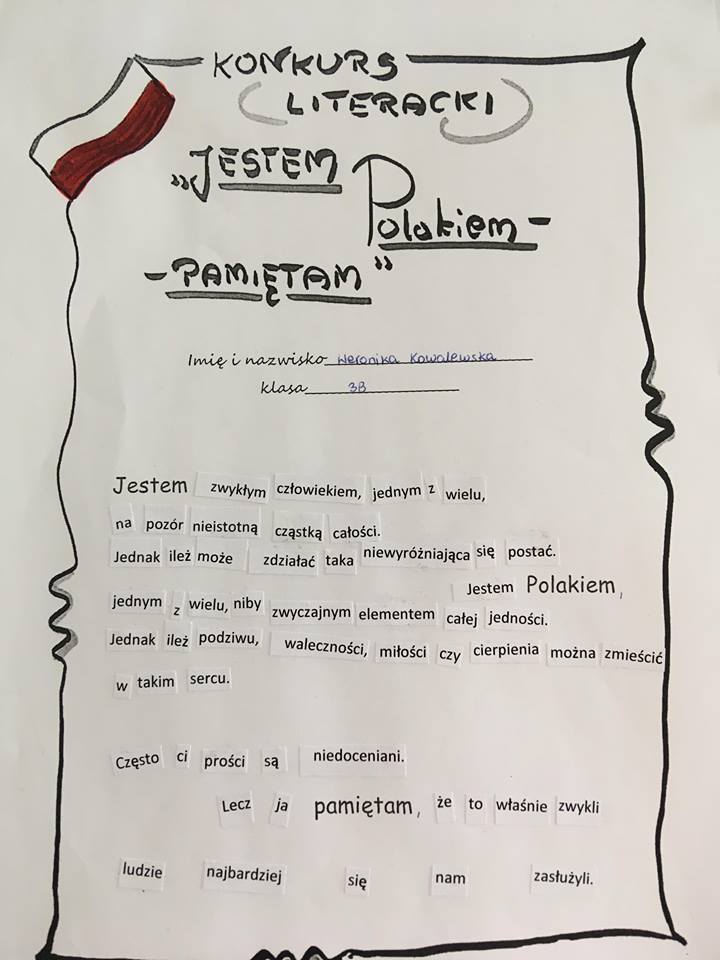 KONKURS
LITERACKI
„JESTEM
Polakiem-
-PAMIĘTAM”
Imię i nazwisko Weronika Kowalewska
klasa 3B
Jestem zwykłym człowiekiem, jednym z wielu,
na pozór nieistotną cząstką całości.
Jednak ileż może zdziałać taka niewyróżniająca się postać.
Jestem Polakiem,
jednym z wielu, niby zwyczajnym elementem całej jedności.
Jednak ileż podziwu, waleczności, miłości czy cierpienia można zmieścić
w takim sercu.
Często ci prości są niedoceniani.
Lecz ja pamiętam, że to właśnie zwykli
ludzie najbardziej się nam zasłużyli.